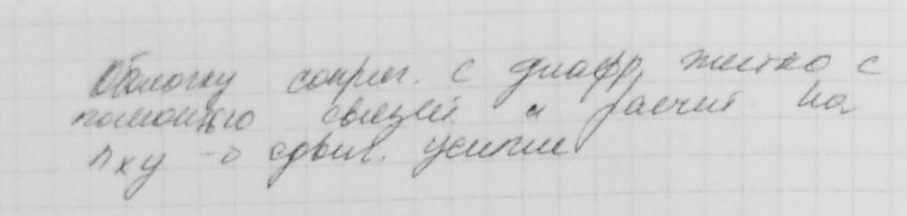 Оболочку сопряг. с диафр. жестко с
помощью связей и расчит. на
nxy → сдвиг. усилие